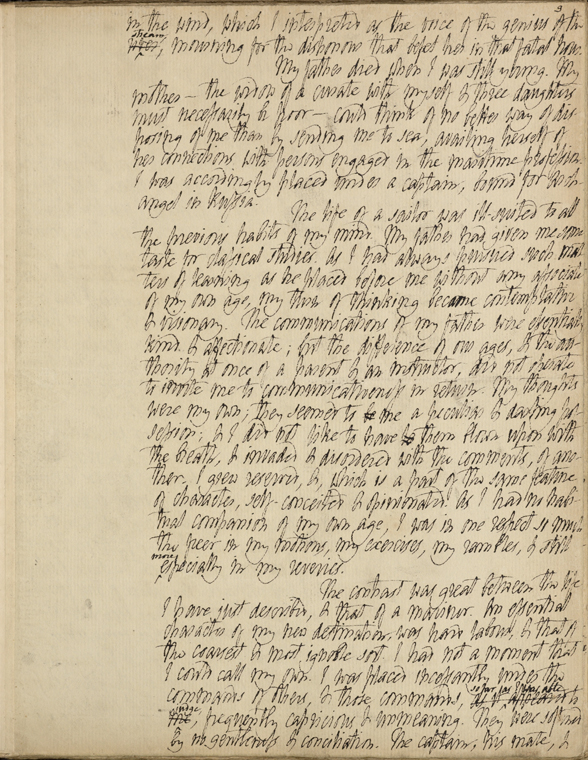 3
in the wind, which I interpreted as the voice of the genius of the
stream
river, mourning for the dishonour that befel her in that fatal hour.
My father died when I was still young. My
mother – the widow of a curate with myself & three daughters
must necessarily be poor – could think of no better way of dis-
posing of me than by sending me to sea, availing herself of
her connections with persons engaged in the maritime profession.
I was accordingly placed under a captain, bound for Arch-
angel in Russia.
The life of a sailor was ill-suited to all
the previous habits of my mind. My father had given me some
taste for classical studies. As I had always pursued such mat-
ters of learning as he placed before me without any associate
of my own age, my turn of thinking became contemplative
& visionary. The communications of my father were essentially
kind & affectionate; but the difference of our ages, & the au-
thority at once of a parent & an instructor, did not operate
to invite me to communicativeness in return. My thoughts
were my own; they seemed to me a peculiar & darling pos-
session; & I did not like to have them blown upon with
the breath, & invaded & disordered with the comments, of ano-
ther. I grew reserved, &, which is a part of the same feature
of character, self-conceited & opinionated. As I had no habi-
tual companion of my own age, I was in one respect so much
the freer in my motions, my exercises, my rambles, & still
more
especially in my reveries.
The contrast was great between the life
I have just described, & that of a mariner. An essential
character of my new destination, was hard labour, & that of
the coarsest & most ignoble sort. I had not a moment that
I could call my own. I was placed incessantly under the
so far as I was able
commands of others, & those commands, as it appeared to
judge
me, frequently capricious & unmeaning. They were softened
by no gentleness & conciliation. The captain, his mate, &